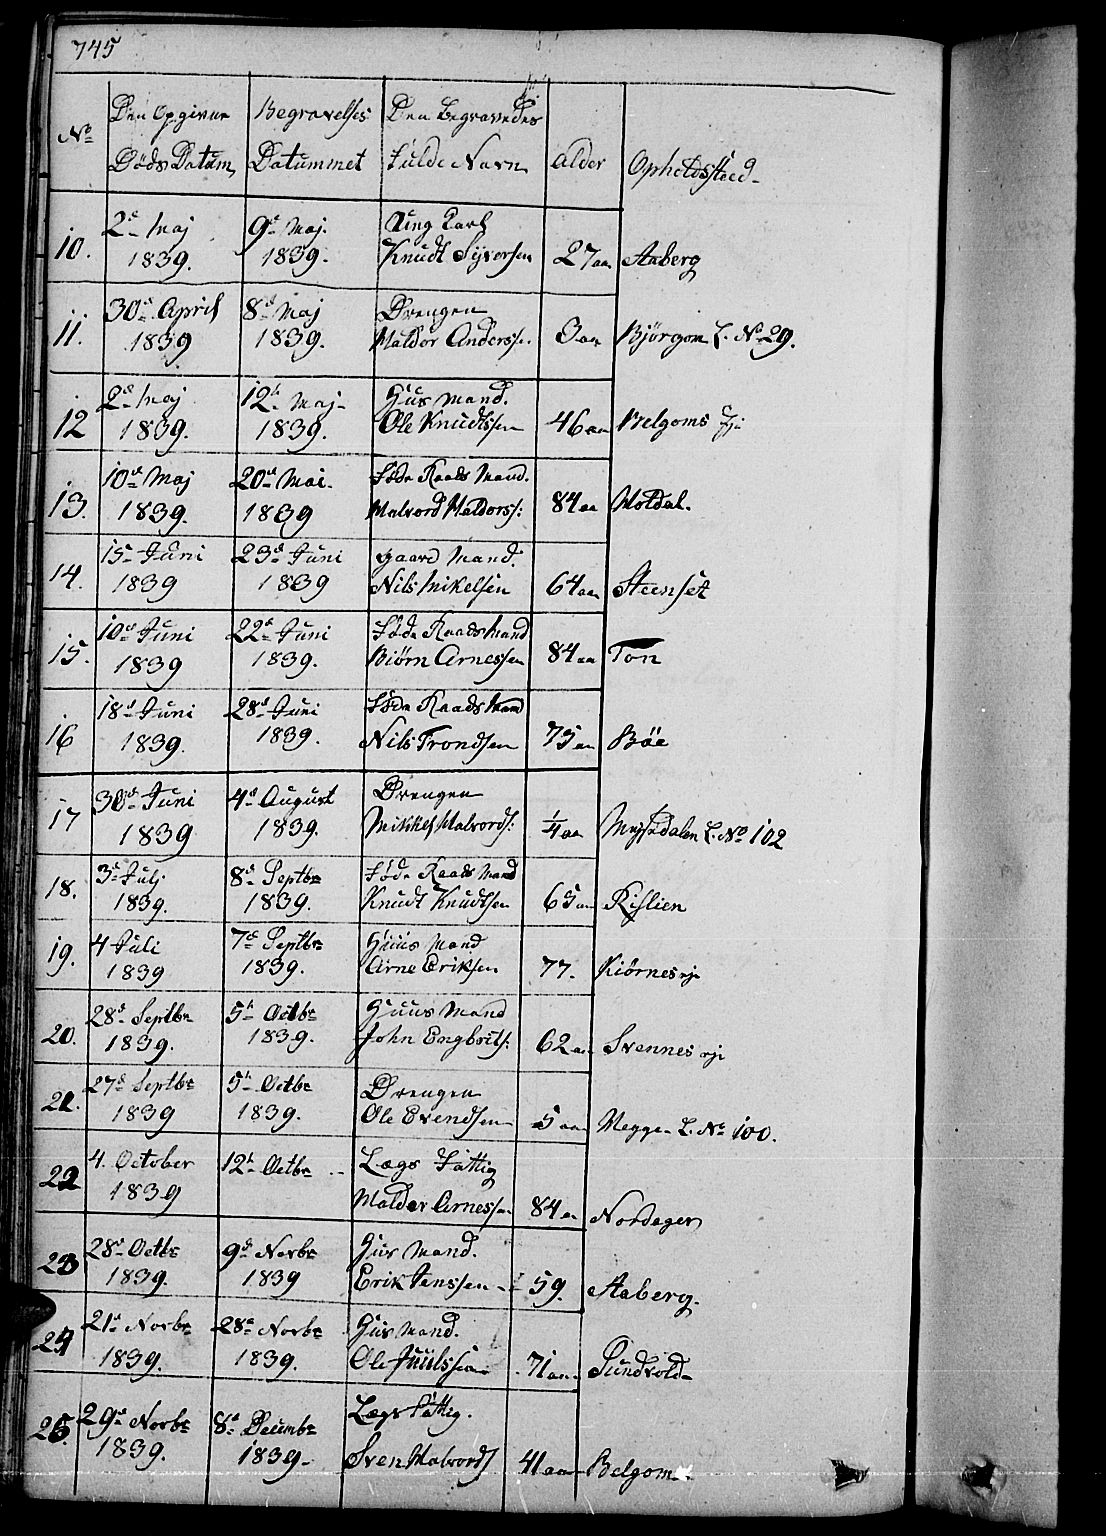 745
No
Den Opgivne
Døds Datum
Begravelses
Datummet
Den Begravedes
Fulde Navn
Alder
Opholdsteed
10. 2d Maj 1839. 9d Maj. 1839. Ung Karl Knudt Syversen 27 aa Aaberg
11. 30d April 1839 8d Maj 1839. Drengen Haldor Anderss. 3 aa Bjørgom L. No 29.
12 2d Maj 1839. 12t Maj 1839. Huus Mand. Ole Knudtssen 46 aa Belgoms Eje
13. 10d Maj 1839. 20d Mai. 1839 Føde Raads Mand. Halvord Haldorss: 84 aa Moldal.
14. 15 Juni 1839 23d Juni 1839 Gaard Mand. Nils Mikelsen 64 aa Steenset
15. 10d Juni 1839 22d Juni 1839. Føde Raads Mand Biørn Arnessen 84 aa Ton
16 18d Juni 1839. 28d Juni 1839. Føde Raads Mand Nils Trondsen 75 aa Bøe
17 30d Juni 1839 4d August 1839. Drengen Mikkel Halvords: 1/4 aa L. No 102
18. 3d Julj 1839. 8d Septbr 1839. Føde Raads Mand Knudt Knudtsen 65 aa Rislien
19. 4 Juli 1839 7d Septbr 1839. Huus Mand Arne Eriksen 77. Kiørnes eje
20. 28d Septbr 1839. 5t Octbr 1839. Huus Mand John Engbrits: 62 aa Svennes eje
21. 27d Septbr 1839 5t Octbr 1839. Drengen Ole Evendsen 5 aa Megge L. No 100.
22 4. October 1839 12t Octbr Lægs Fattig Haldor Arnessen 84 aa Nordager
23 28d Octbr 1839. 9d Novbr 1839 Huus Mand. Erik Jenssen 59. Aaberg.
24 21d Novbr 1839. 28d Novbr 1839. Huus Mand. Ole Juulssen 71 aa Sundvold
25. 29d Novbr 1839. 8d Decembr 1839. Lægs Fattig. Sven Halvords 41 aa Belgom.